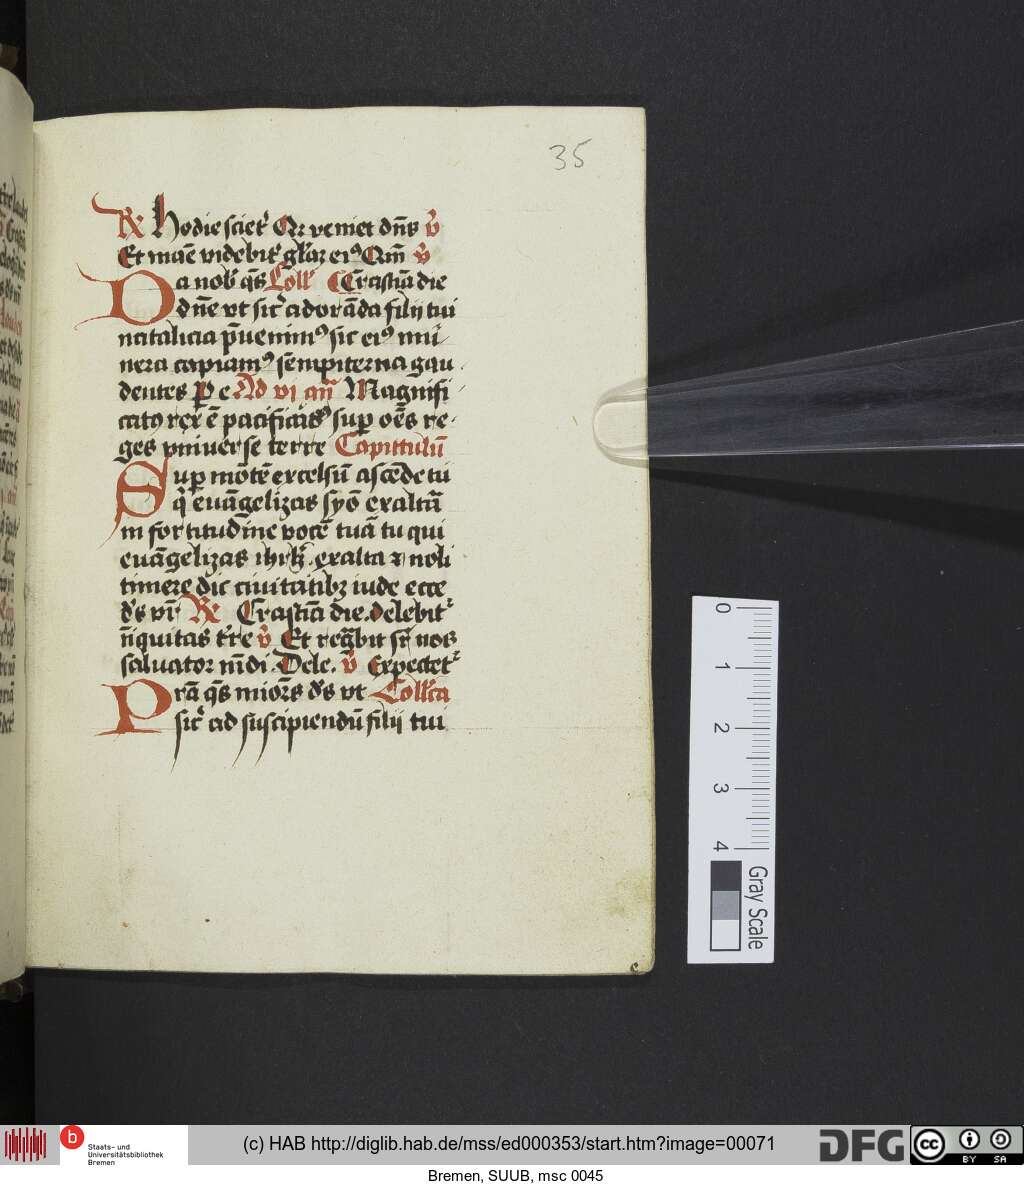 35
R Hodie sciet͛ Qr veniet dn̄s v̄
Et mane videbit͛ gl̄az eiꝰ Qm̄ v̄
Da nob͛ qs̄ Coll͛ Crastīa die
dn̄e vt sic͛ adorāda filij tui
natalicia p̄uenimꝰ sic eiꝰ mu͛
nera capiamꝰ sēmpiterna gau
dentes P e Ad vi an̄ Magnifi
catꝰ rex ē pacificꝰ sup oēs re
ges vniuerse terre Capittulū
Sup mōtē excelsū ascēde tu
q͛ euāgelizas syō exaltā
in fortitudīne vocē tuā tu qui
euāgelizas ihrlz̄. exalta ⁊ noli
timere dic ciuitatibz iude ecce
ds̄ vr͛ R Crastīa die. delebit͛
īiquitas tr̄e v̄ Et regn̄bit sr̄ nos
saluator mūdi. Dele. v̄ Expectet͛
Prā qs̄ miors̄ ds̄ vt Coll͛ca
sic͛ ad suscipiendū filij tui
c
0
1
2
3
4
Gray Scale
b
Staats- und
Universitätsbibliothek
Bremen
(c) HAB http://diglib.hab.de/mss/ed000353/start.htm?image=00071
DFG
cc
BY SA
Bremen, SUUB, msc 0045